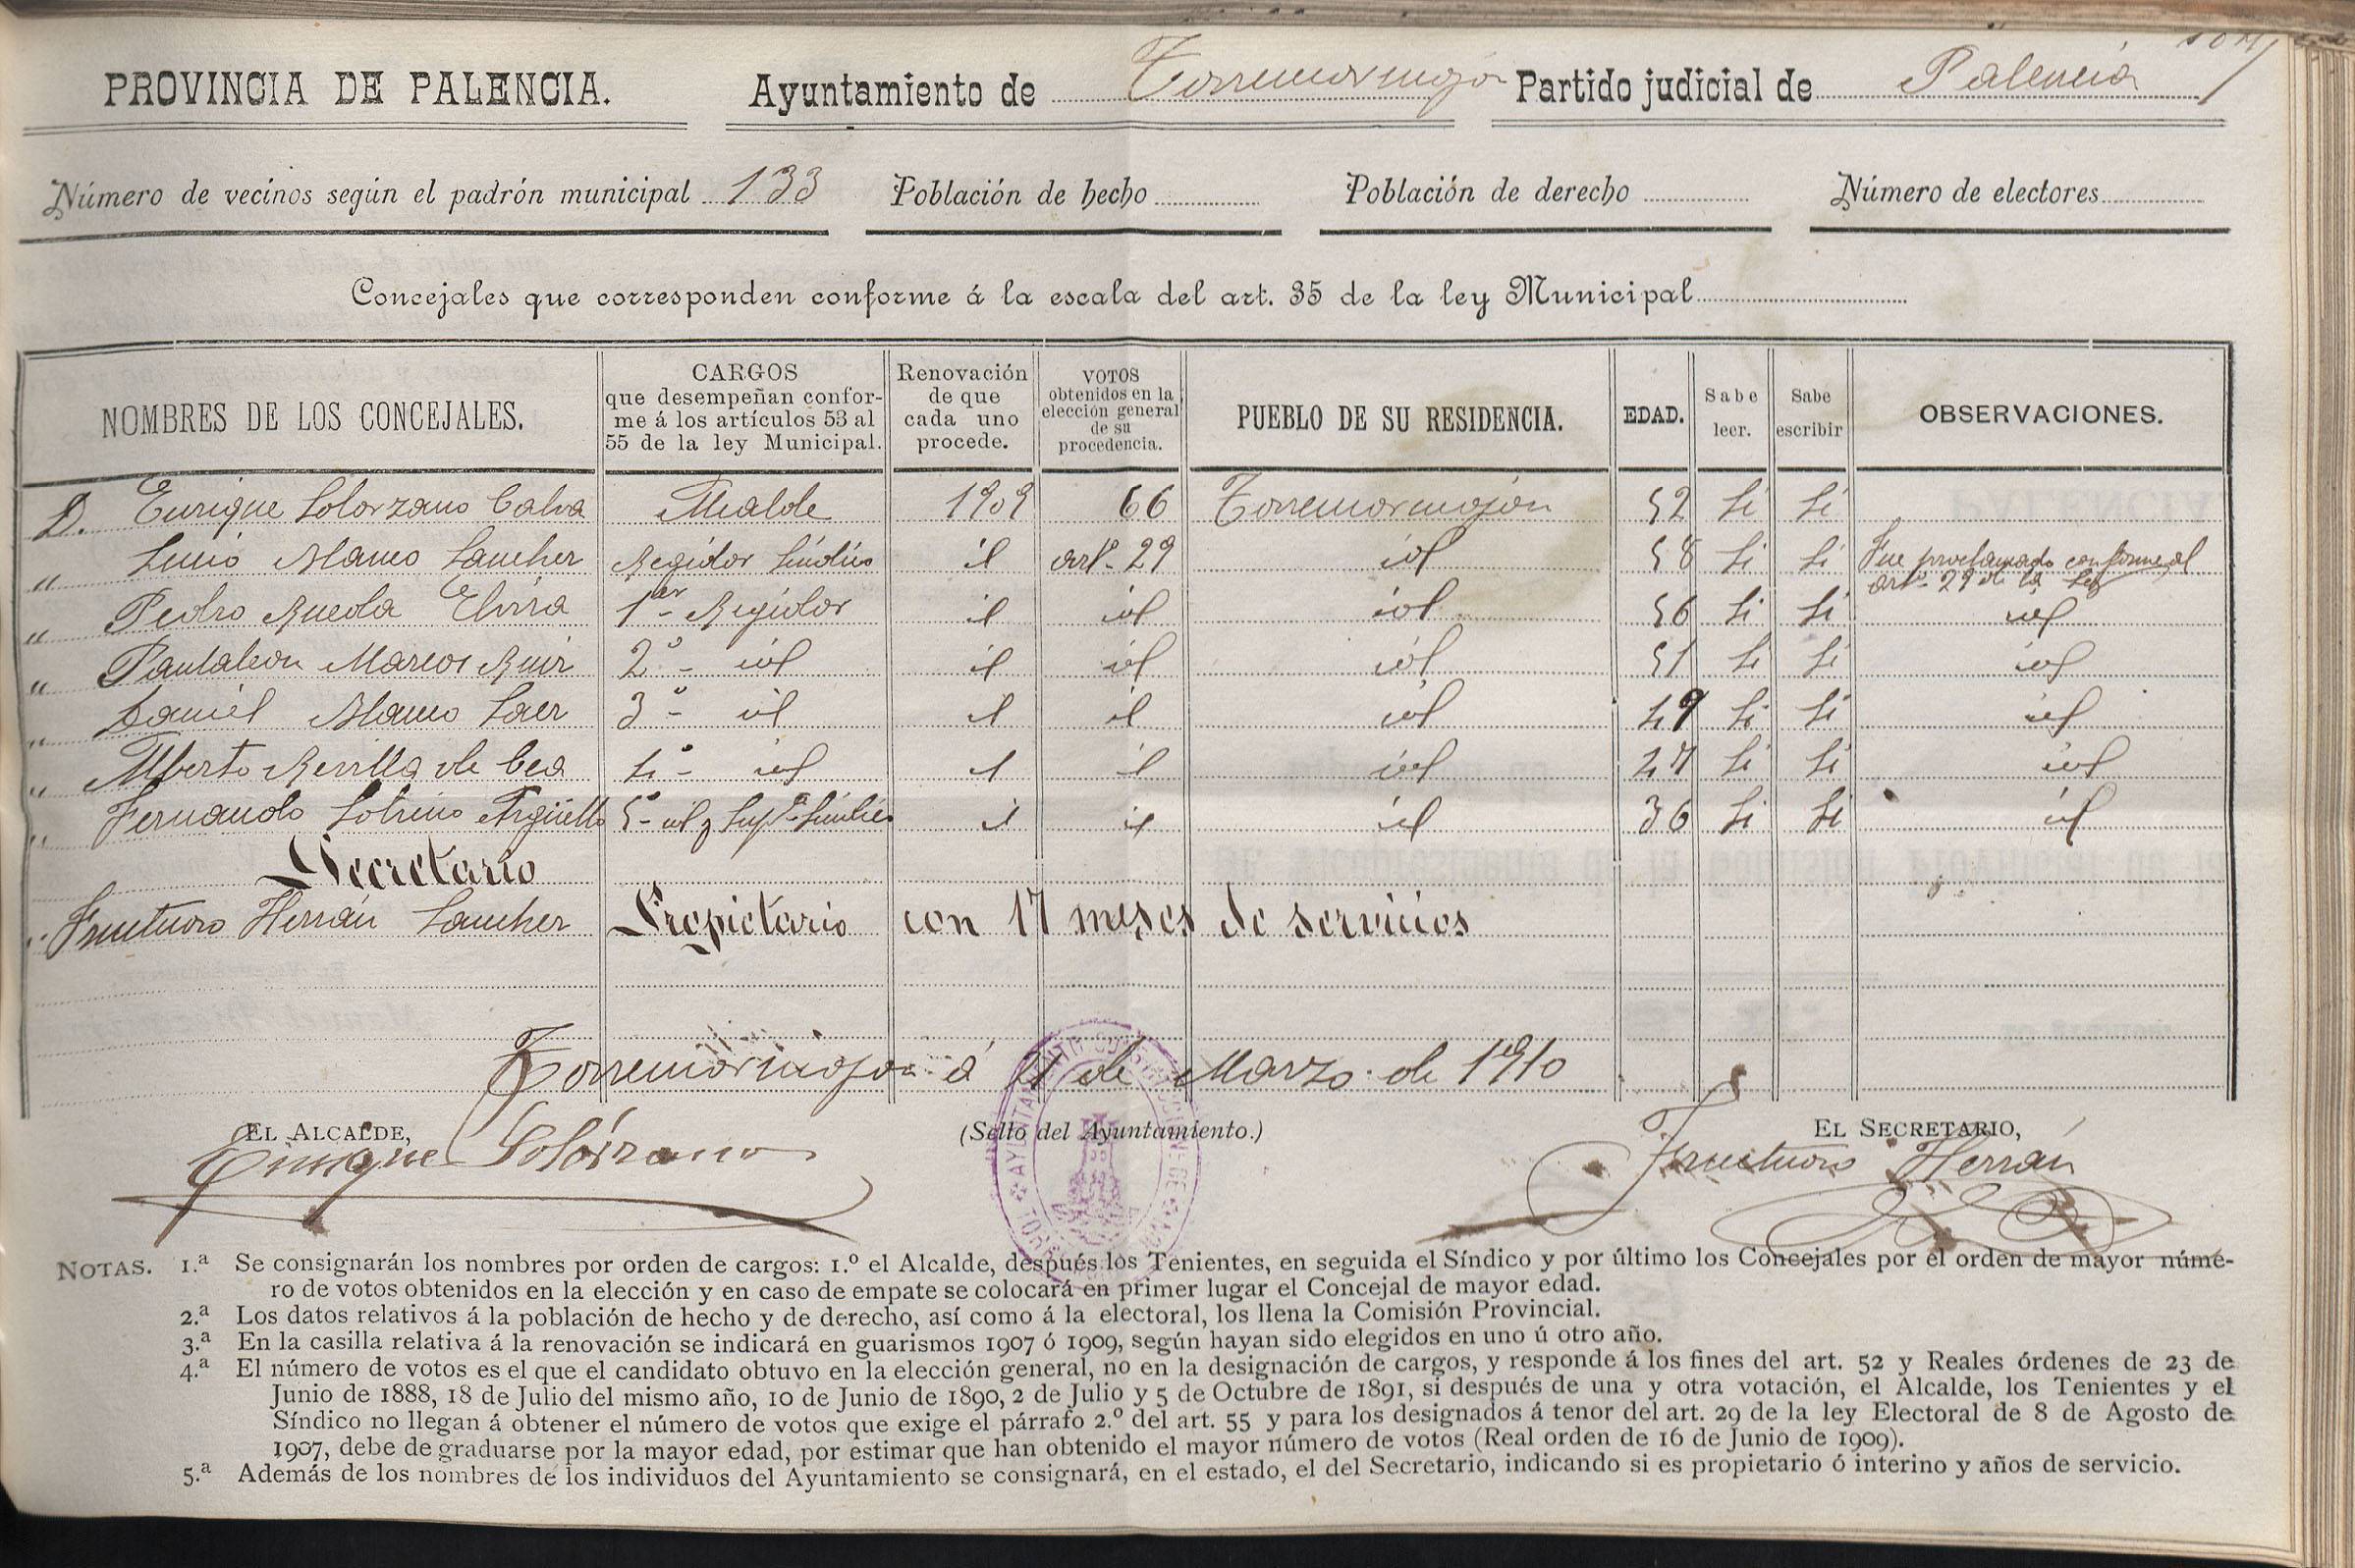 PROVINCIA DE PALENCIA. Ayuntamiento de Torremormojon Partido judicial de Palencia
Número de vecinos según el padrón municipal 133 Población de hecho Población de derecho Número de electores
Concejales que corresponden conforme á la escala del art. 35 de la ley Municipal
NOMBRES DE LOS CONCEJALES.
CARGOS
que desempeñan confor-
me á los artículos 53 al
55 de la ley Municipal.
Renovación
de que
cada uno
procede.
VOTOS
obtenidos en la
elección general
de su
procedencia.
PUEBLO DE SU RESIDENCIA.
EDAD.
Sabe
leer.
Sabe
escribir
OBSERVACIONES.
D. Enrique Solorzano Calva Alcalde 1909 66 Torremormojón 52 Si Si
" Lucio Blanco Sanchez Regidor Síndico id artº. 29 id 58 Si Si Fue proclamado conforme al
artº. 29 de la Ley
" Pedro Rueda Elvira 1er Regidor id id id 56 Si Si id
" Pantaleon Marcos Ruiz 2º id id id id 51 Si Si id
" Daniel Blanco Saez 3º id id id id 49 Si Si id
" Alberto Revilla de Cea 4º id id id id 27 Si Si id
" Fernando Sotrino Argüello 5º id y Supte Síndico id id id 36 Si Si id
Secretario
" Fructuoso Herrán Sanchez Propietario con 17 meses de servicios
Torremormojon á 21 de Marzo de 1910
EL ALCALDE, (Sello del Ayuntamiento.) EL SECRETARIO,
Enrique Solórzano Fructuoso Herrán
NOTAS. 1.ª Se consignarán los nombres por orden de cargos: 1.º el Alcalde, después los Tenientes, en seguida el Síndico y por último los Concejales por el orden de mayor núme-
ro de votos obtenidos en la elección y en caso de empate se colocará en primer lugar el Concejal de mayor edad.
2.ª Los datos relativos á la población de hecho y de derecho, así como á la electoral, los llena la Comisión Provincial.
3.ª En la casilla relativa á la renovación se indicará en guarismos 1907 ó 1909, según hayan sido elegidos en uno ú otro año.
4.ª El número de votos es el que el candidato obtuvo en la elección general, no en la designación de cargos, y responde á los fines del art. 52 y Reales órdenes de 23 de
Junio de 1888, 18 de Julio del mismo año, 10 de Junio de 1890, 2 de Julio y 5 de Octubre de 1891, si después de una y otra votación, el Alcalde, los Tenientes y el
Síndico no llegan á obtener el número de votos que exige el párrafo 2.º del art. 55 y para los designados á tenor del art. 29 de la ley Electoral de 8 de Agosto de
1907, debe de graduarse por la mayor edad, por estimar que han obtenido el mayor número de votos (Real orden de 16 de Junio de 1909).
5.ª Además de los nombres de los individuos del Ayuntamiento se consignará, en el estado, el del Secretario, indicando si es propietario ó interino y años de servicio.